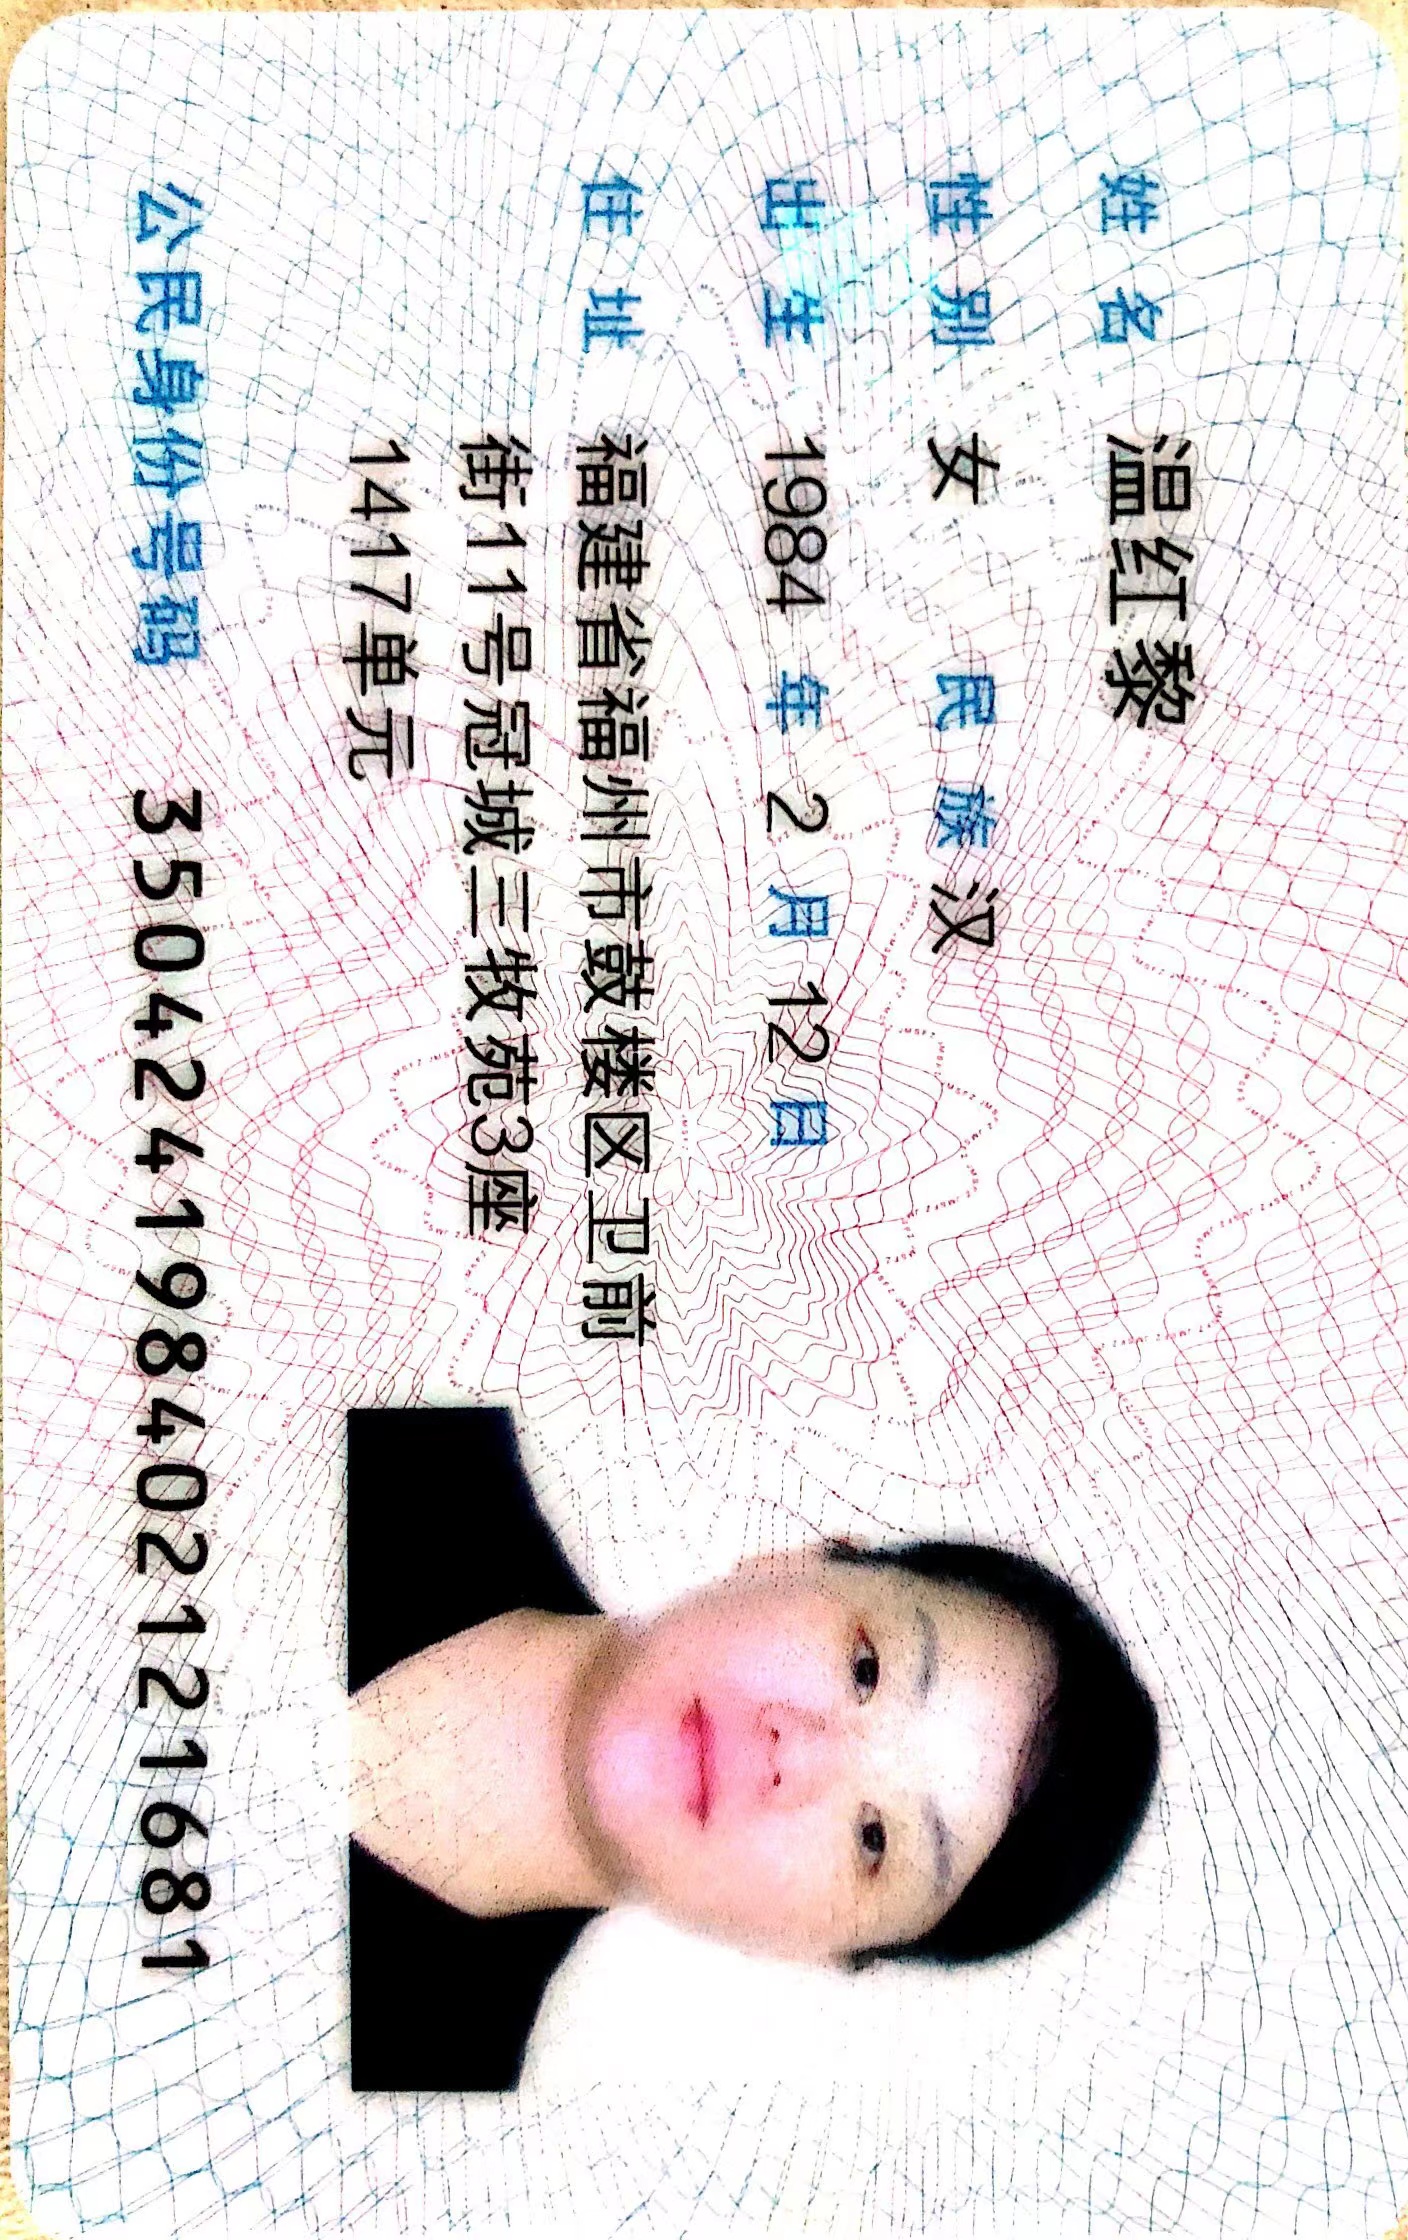 姓名 温红黎
性别 女 民族 汉
出生 1984 年 2 月 12 日
住址 福建省福州市鼓楼区卫前
街11号冠城三牧苑3座
1417单元
公民身份号码 350424198402121681